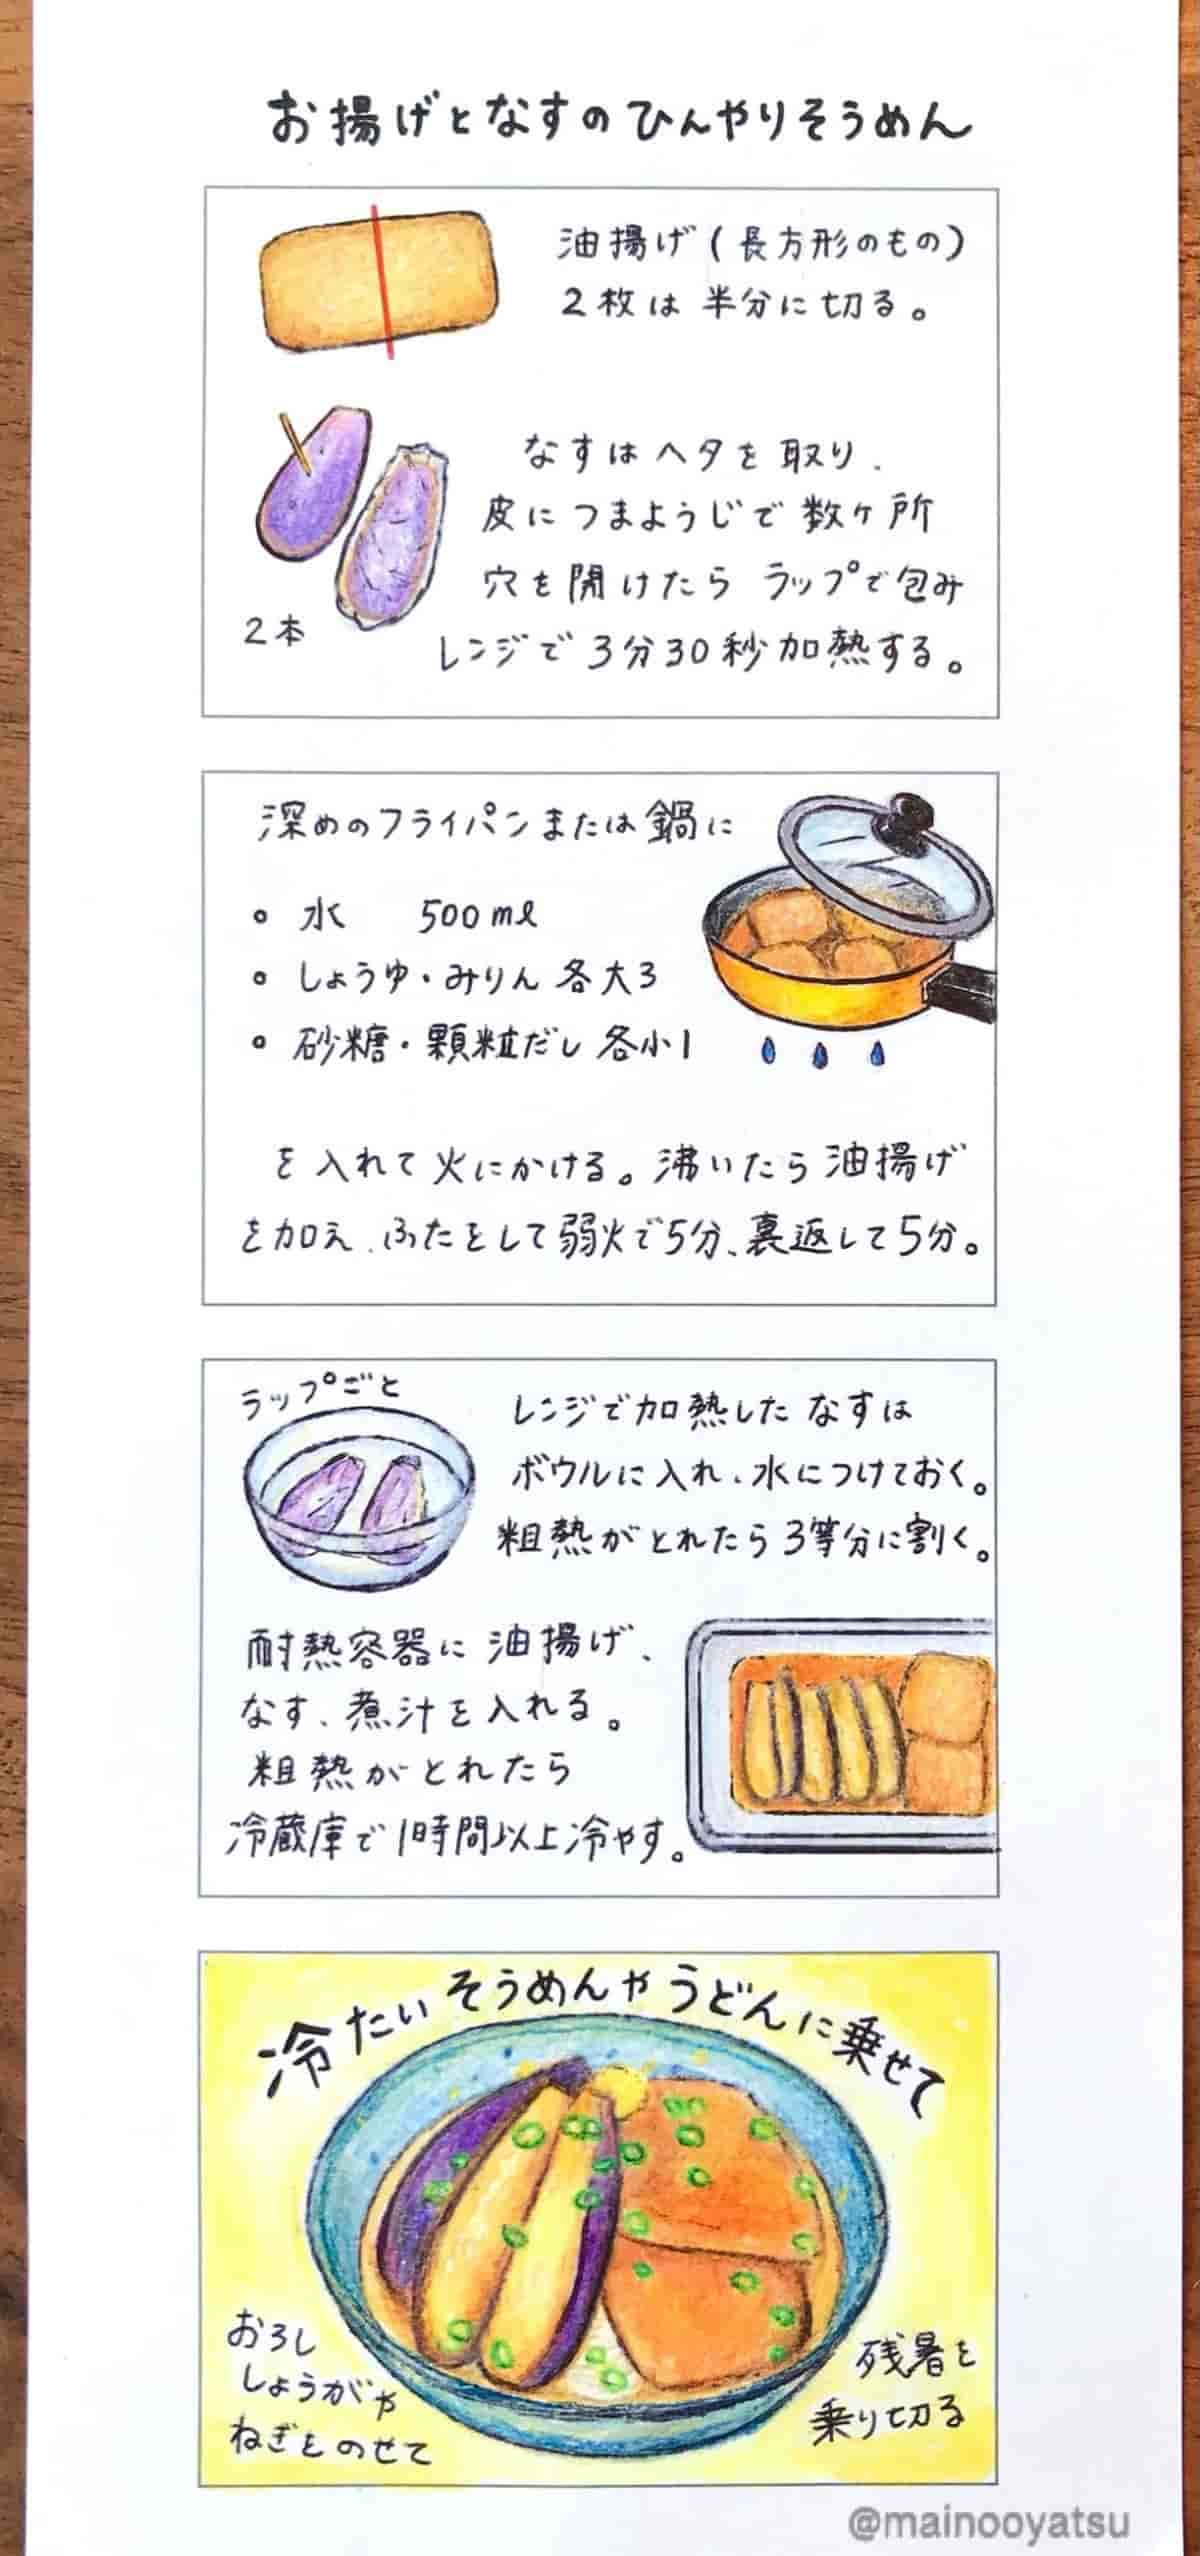 お揚げとなすのひんやりそうめん
油揚げ(長方形のもの)
2枚は半分に切る。
なすはヘタを取り、
皮につまようじで数ヶ所
穴を開けたらラップで包み
2本
レンジで3分30秒加熱する。
深めのフライパンまたは鍋に
• 水 500ml
• しょうゆ・みりん 各大3
• 砂糖・顆粒だし 各小1
を入れて火にかける。沸いたら油揚げ
を加え、ふたをして弱火で5分、裏返して5分。
ラップごと
レンジで加熱したなすは
ボウルに入れ、水につけておく。
粗熱がとれたら3等分に割く。
耐熱容器に油揚げ、
なす、煮汁を入れる。
粗熱がとれたら
冷蔵庫で1時間以上冷やす。
冷たいそうめんやうどんに乗せて
おろし
しょうがや
ねぎをのせて
残暑を
乗り切る
@mainooyatsu